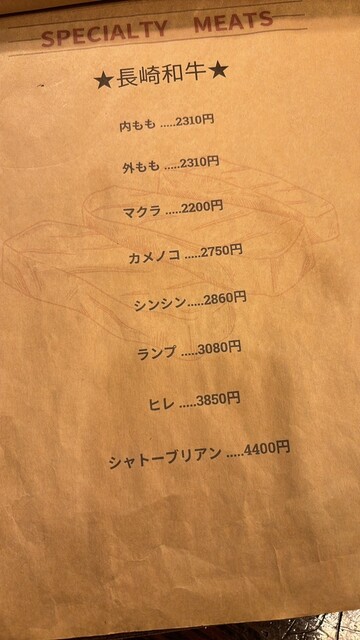 SPECIALTY MEATS
★長崎和牛★
内もも .....2310円
外もも .....2310円
マクラ .....2200円
カメノコ .....2750円
シンシン.....2860円
ランプ .....3080円
ヒレ .....3850円
シャトーブリアン .....4400円